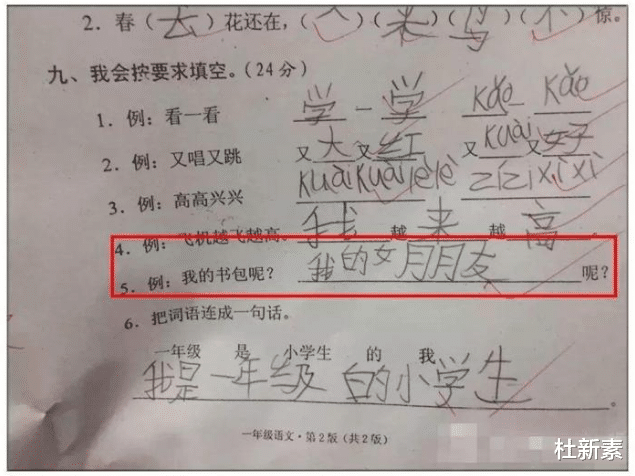 2. 春(去)花还在,(人)(来)(鸟)(不)惊。
九、我会按要求填空。(24分)
1. 例：看一看 学一学 kǎo一kǎo
2. 例：又唱又跳 又大又红 又kuài又好
3. 例：高高兴兴 kuàikuàilèlè zǐzǐxìxì
4. 例：飞机越飞越高。 我越来越高
5. 例：我的书包呢？ 我的女月月友呢？
6. 把词语连成一句话。
一年级 是 小学生 的 我
我是一年级白的小学生
一年级语文·第2版(共2版)
杜新素